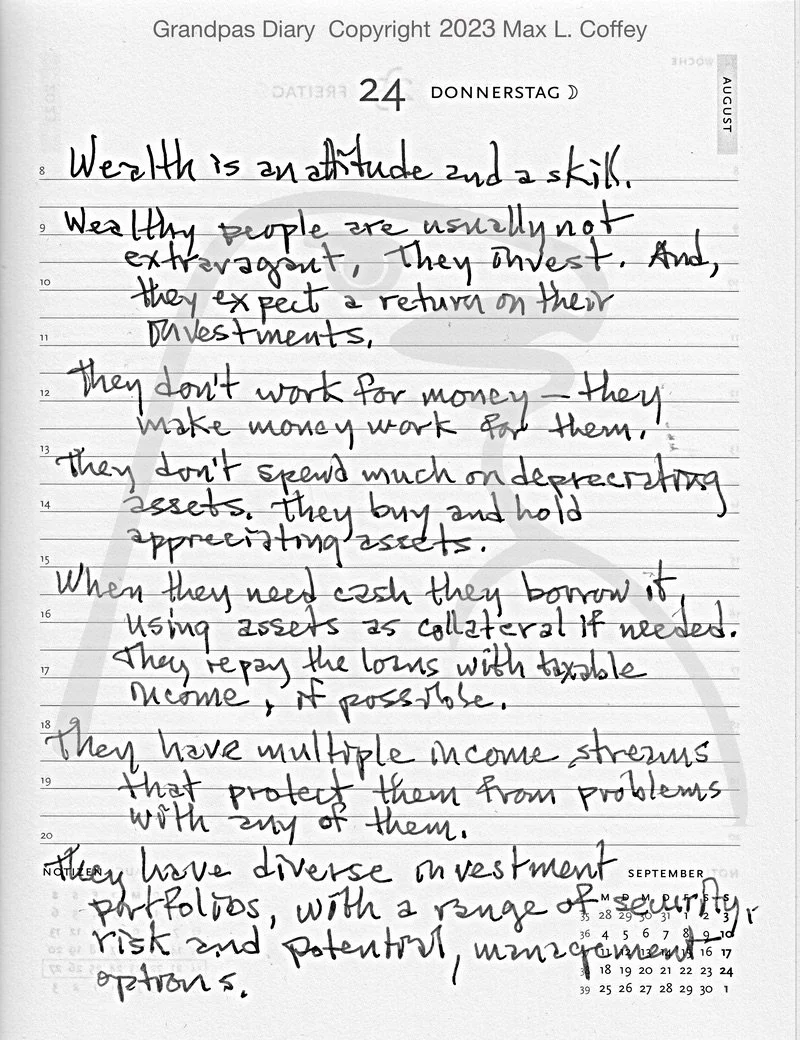 Grandpas Diary Copyright 2023 Max L. Coffey
WOCHE
FREITAG
24 DONNERSTAG
AUGUST
8 Wealth is an attitude and a skill.
9 Wealthy people are usually not
extravagant, They invest. And,
10 they expect a return on their
11 investments.
12 They don't work for money — they
make money work for them.
13 They don't spend much on depreciating
14 assets. They buy and hold
appreciating assets.
15 When they need cash they borrow it,
16 using assets as collateral if needed.
17 They repay the loans with taxable
income, if possible.
18 They have multiple income streams
19 that protect them from problems
with any of them.
20
NOTIZEN They have diverse investment
SEPTEMBER
portfolios, with a range of security,
risk and potential, management
options.
M D M D F S S
35 28 29 30 31 1 2 3
36 4 5 6 7 8 9 10
11 12 13 14 15 16 17
18 19 20 21 22 23 24
39 25 26 27 28 29 30 1